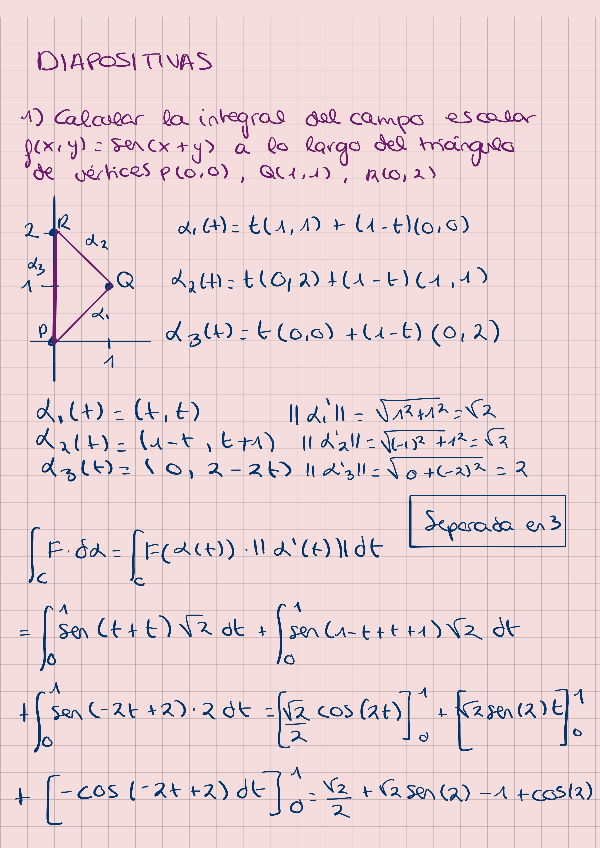 DIAPOSITIVAS
1) Calcular la integral del campo escalar
f(x,y) = sen(x+y) a lo largo del triángulo
de vértices P(0,0), Q(1,1), R(0,2)
2 R α₂ α₁(t) = t(1,1) + (1-t)(0,0)
α₃ 1 Q α₂(t) = t(0,2) + (1-t)(1,1)
P α₁ α₃(t) = t(0,0) + (1-t)(0,2)
1
α₁(t) = (t,t) ||α₁'|| = √1²+1² = √2
α₂(t) = (1-t, t+1) ||α'₂|| = √(-1)²+1² = √2
α₃(t) = (0, 2-2t) ||α'₃|| = √0+(-2)² = 2
Separada en 3
∫_C F·dα = ∫_C F(α(t))·||α'(t)|| dt
= ∫₀¹ sen(t+t)√2 dt + ∫₀¹ sen(1-t+t+1)√2 dt
+ ∫₀¹ sen(-2t+2)·2 dt = [√2/2 cos(2t)]₀¹ + [√2 sen(2)t]₀¹
+ [-cos(-2t+2) dt]₀¹ = √2/2 + √2 sen(2) - 1 + cos(2)